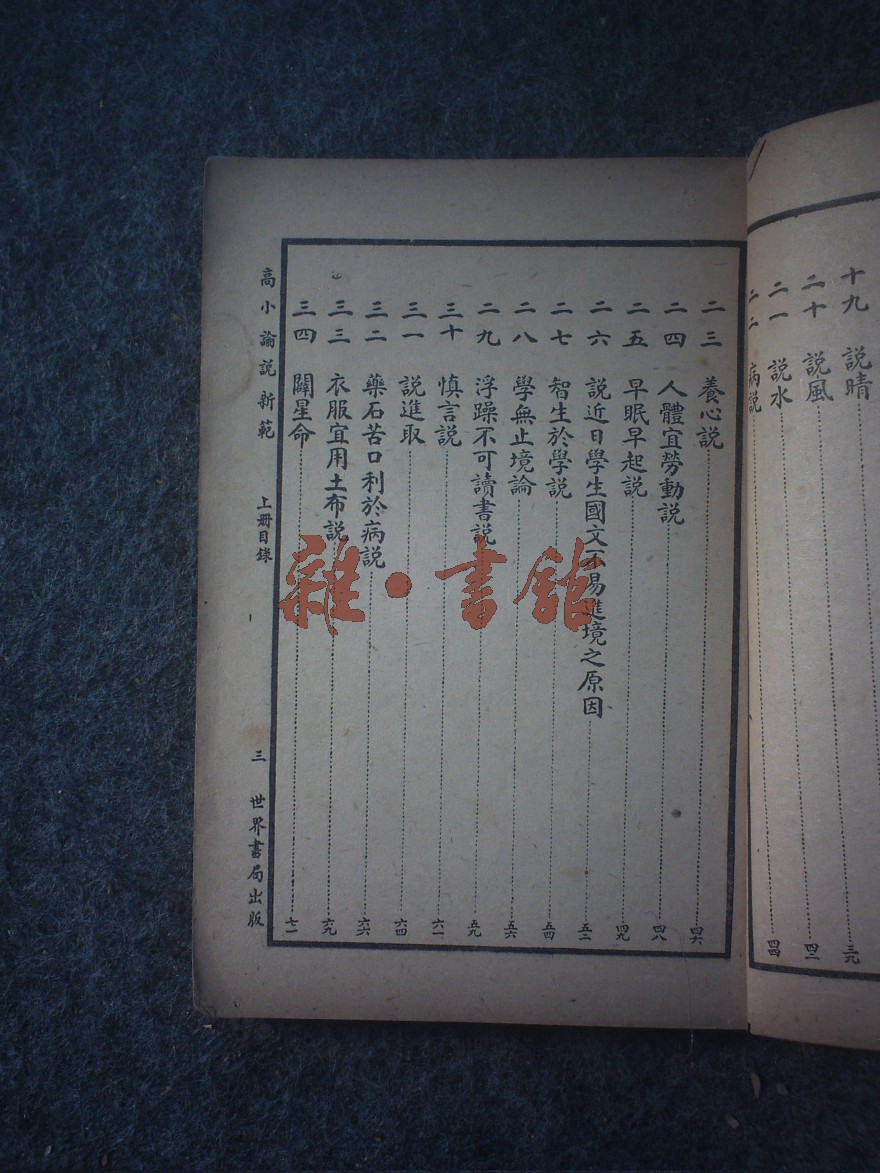 十九 説晴 三九
二十 説風 四二
二一 説水 四四
二二 病説
二三 養心説 四六
二四 人體宜勞動説 四八
二五 早眠早起説 四九
二六 説近日學生國文不易進境之原因 五二
二七 智生於學説 五四
二八 學無止境論 五六
二九 浮躁不可讀書説 五九
三十 慎言説 六一
三一 説進取 六四
三二 藥石苦口利於病説 六六
三三 衣服宜用土布説 六九
三四 闢星命 七一
高小論説新範 上册目錄 三 世界書局出版
雜·書館